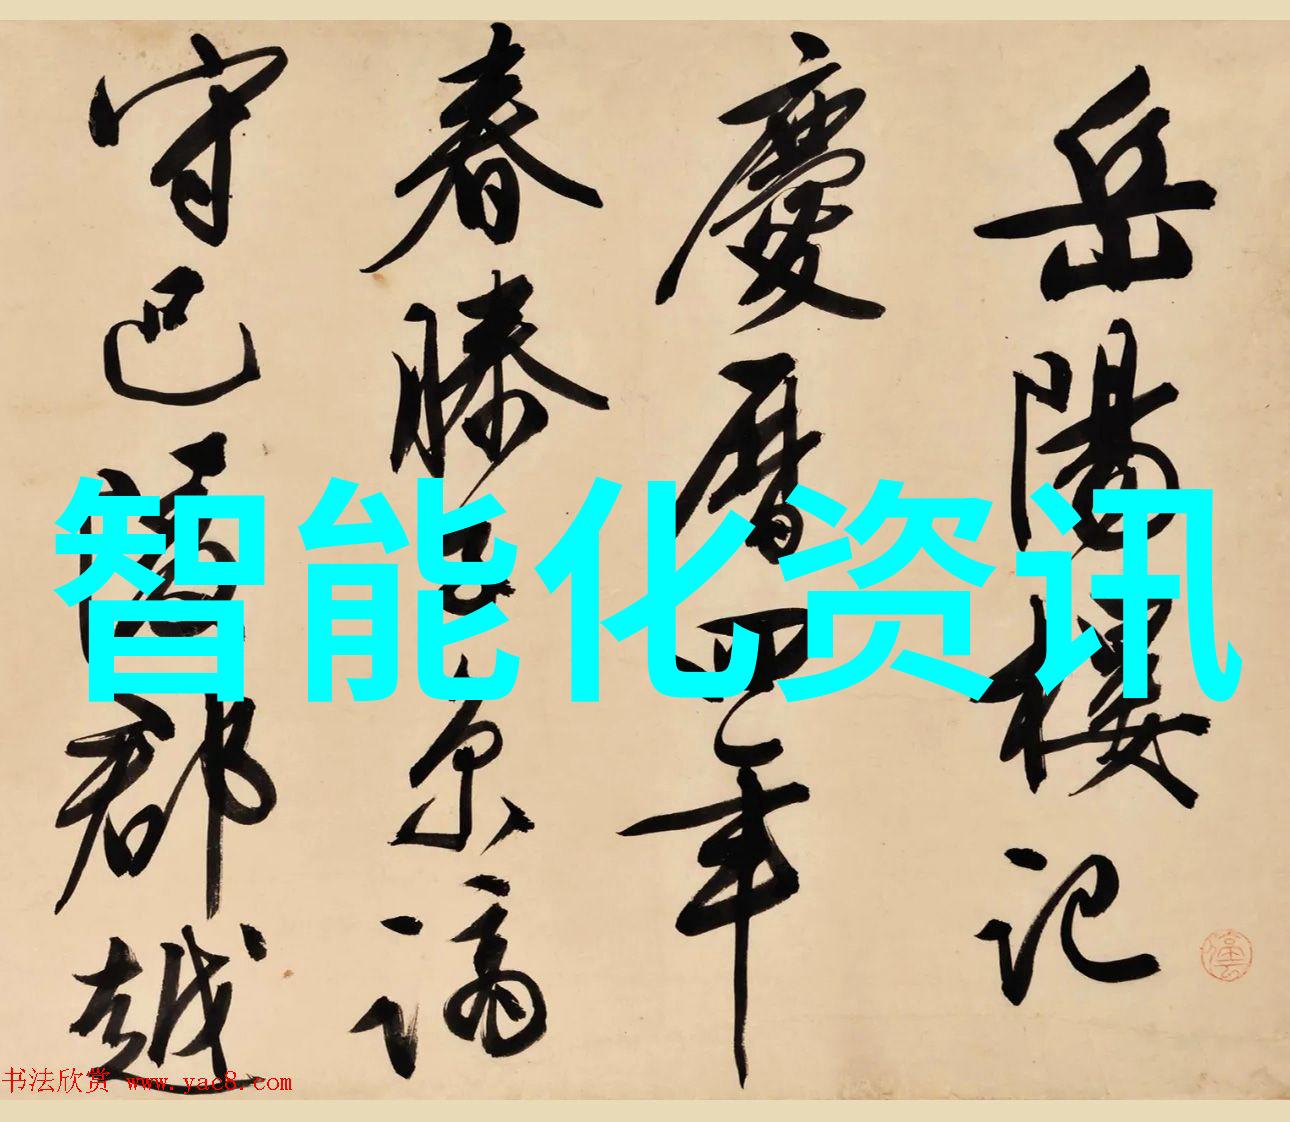 岳陽樓記
慶曆四年
春滕子京謫
守巴陵郡越
智能化资讯
书法欣赏 www.yac8.com